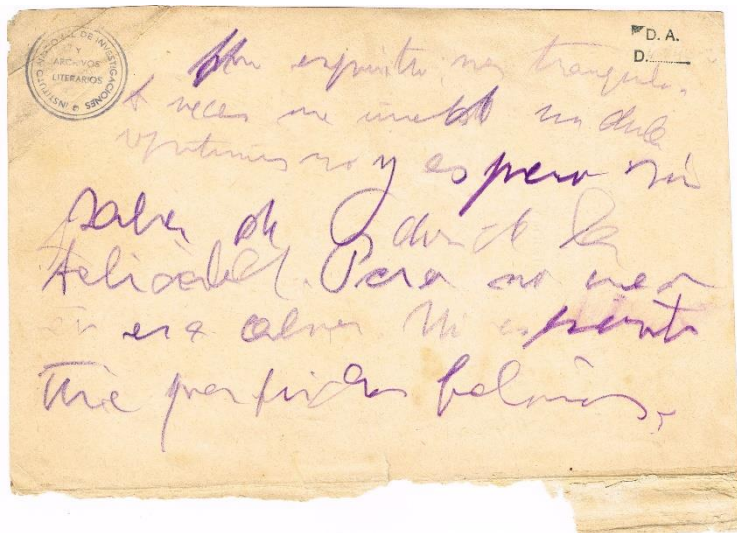 INSTITUTO NACIONAL DE INVESTIGACIONES
Y
ARCHIVOS
LITERARIOS
D. A.
D.
espíritu más tranquilo.
A veces me un dulce
optimismo y espero sin
saber de donde la
felicidad. Pero no creo
en esa calma. Mi espíritu
tiene perfidias felinas.